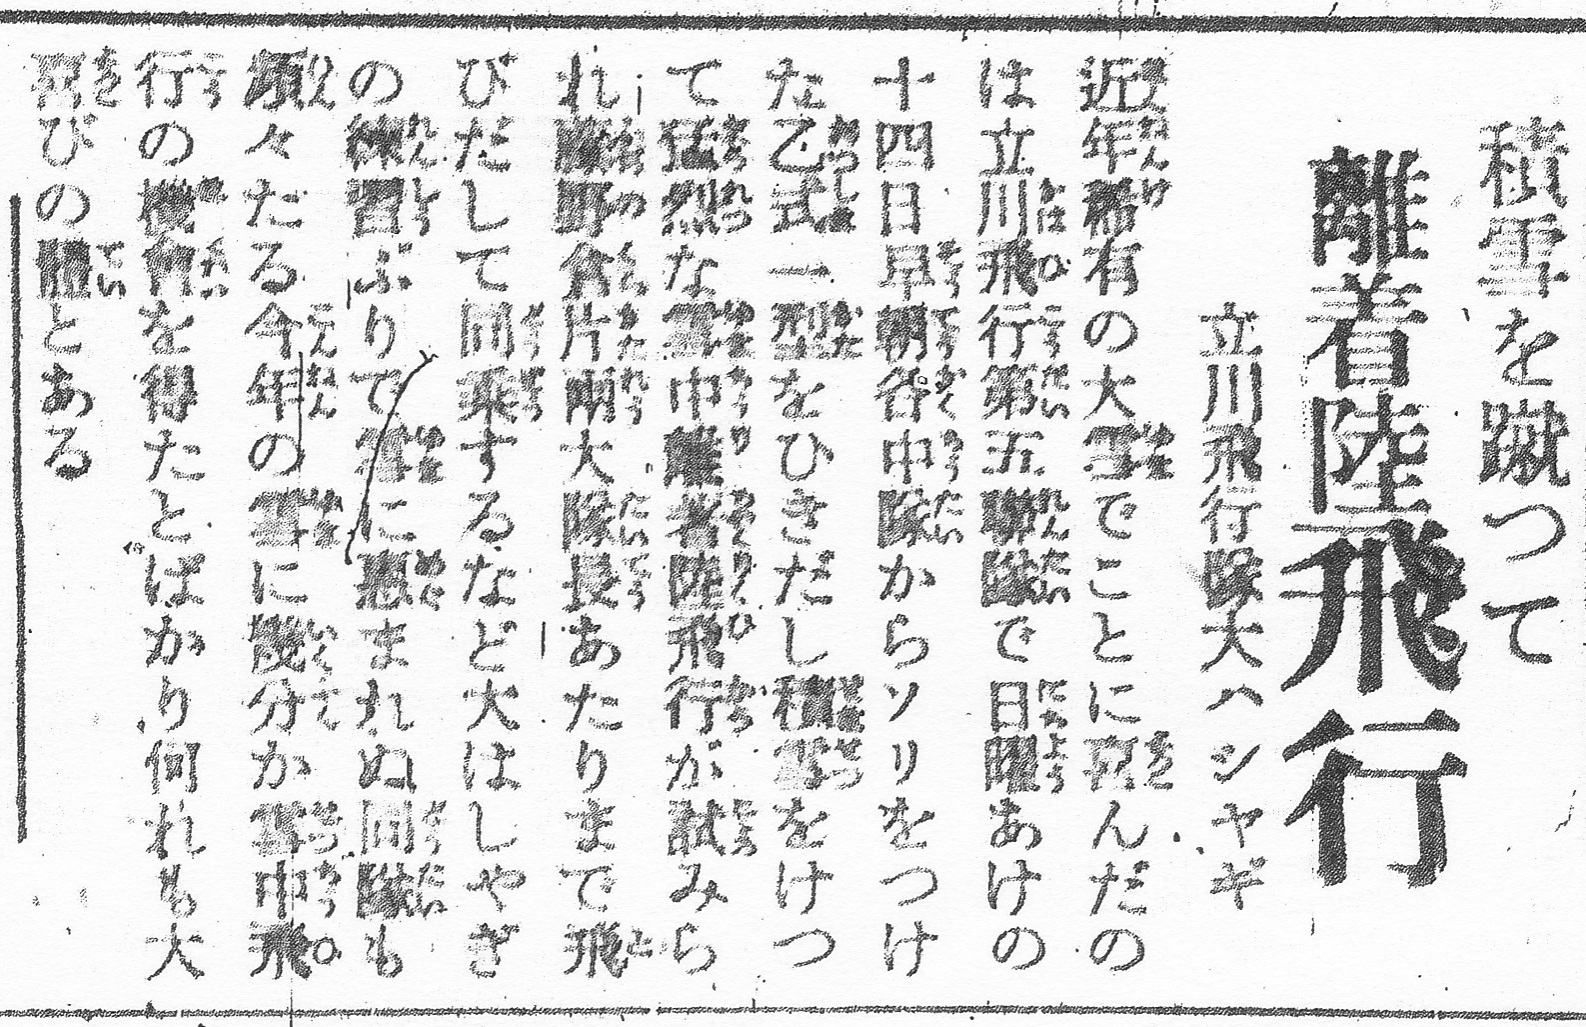 積雪を蹴つて
離着陸飛行
立川飛行隊大ハシヤギ
近年稀有の大雪でことに喜んだの
は立川飛行第五聯隊で日曜あけの
十四日早朝谷中隊からソリをつけ
た乙式一型をひきだし積雪をけつ
て猛烈な雪中離着陸飛行が試みら
れ隊町倉片岡大隊長あたりまで飛
びだして同乗するなど大はしやぎ
の練習ぶりで雪に惠まれぬ同隊も
々たる今年の雪に幾分か雪中飛
行の機會を得たとばかり何れも大
喜びの態とある